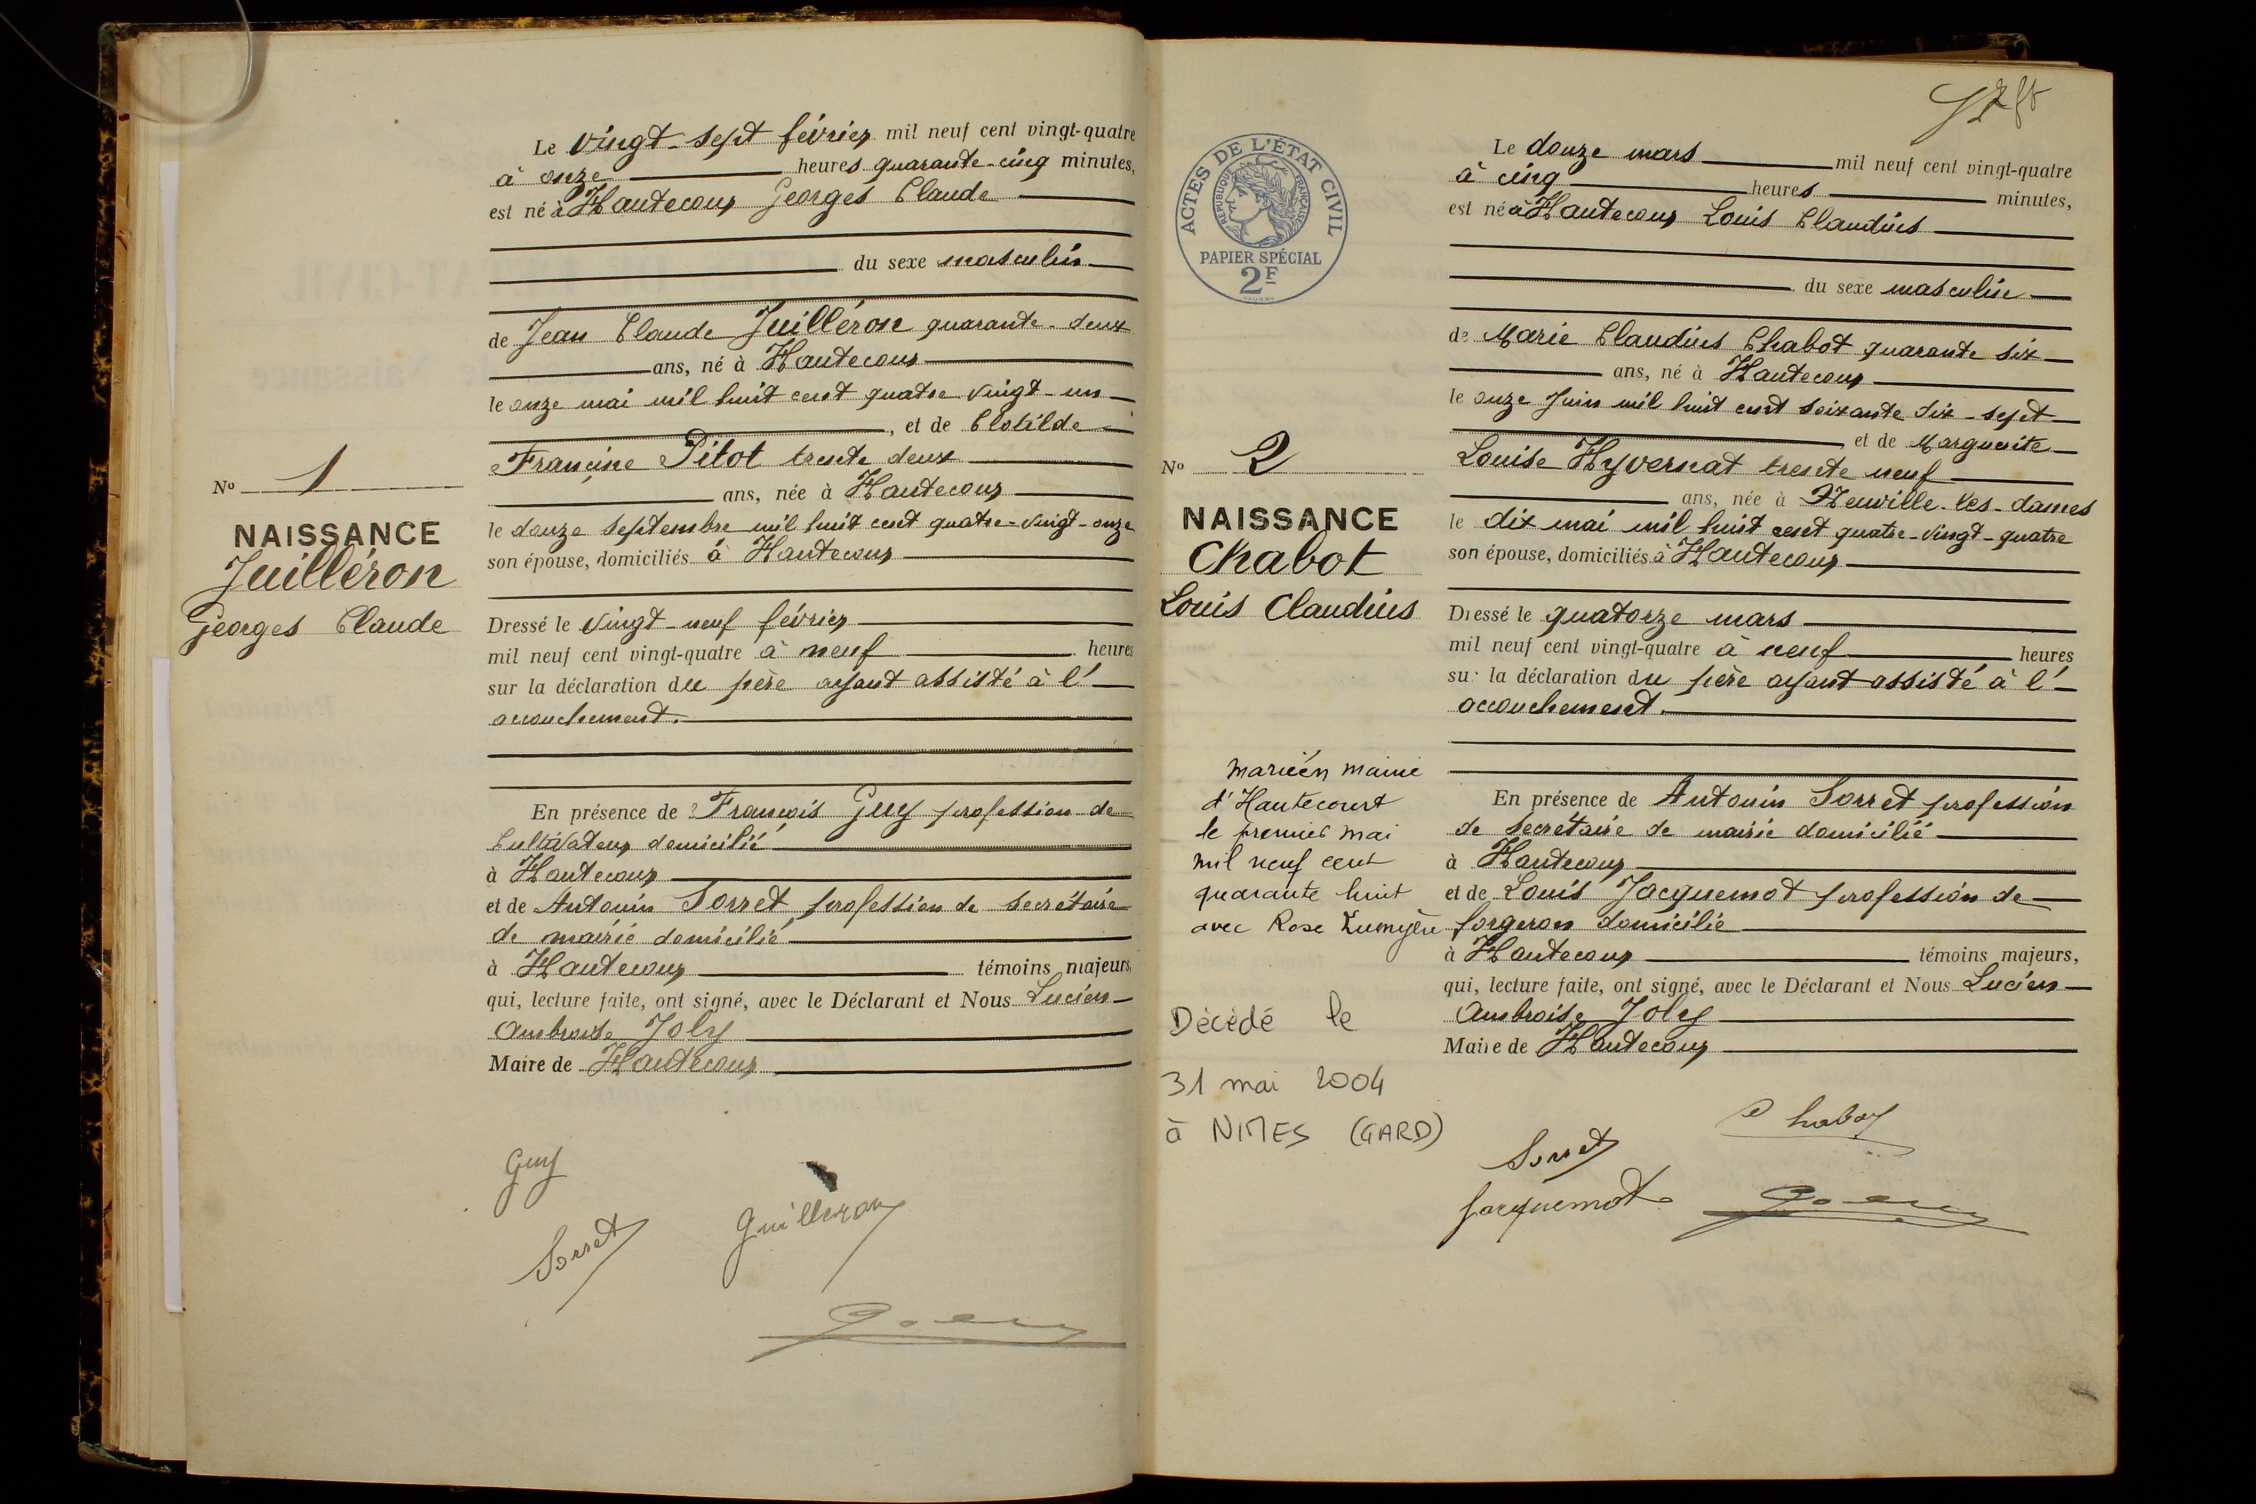 Le vingt-sept février mil neuf cent vingt-quatre
à onze heures quarante-cinq minutes,
est né à Hautecour Georges Claude
du sexe masculin
de Jean Claude Juilléron quarante-deux
ans, né à Hautecour
le onze mai mil huit cent quatre vingt-un
, et de Clotilde
Francine Pitot trente deux
ans, née à Hautecour
le douze septembre mil huit cent quatre-vingt-onze
son épouse, domiciliés à Hautecour
Dressé le vingt-neuf février
mil neuf cent vingt-quatre à neuf heures
sur la déclaration du père ayant assisté à l'
accouchement.
En présence de François Guy profession de
cultivateur domicilié
à Hautecour
et de Antonin Sorret, profession de secrétaire
de mairie domicilié
à Hautecour témoins majeurs,
qui, lecture faite, ont signé, avec le Déclarant et Nous Lucien
Ambroise Joly
Maire de Hautecour
No 1
NAISSANCE
Juilléron
Georges Claude
Guy
Sorret
Guilleron
ACTES DE L'ÉTAT CIVIL
RÉPUBLIQUE FRANÇAISE
PAPIER SPÉCIAL
2F
Le douze mars mil neuf cent vingt-quatre
à cinq heures minutes,
est né à Hautecour Louis Claudius
du sexe masculin
de Marie Claudius Chabot quarante six
ans, né à Hautecour
le onze Juin mil huit cent soixante dix-sept
et de Marguerite
Louise Hyvernat trente neuf
ans, née à Neuville-les-dames
le dix mai mil huit cent quatre-vingt-quatre
son épouse, domiciliés à Hautecour
Dressé le quatorze mars
mil neuf cent vingt-quatre à neuf heures
sur la déclaration du père ayant assisté à l'
accouchement.
En présence de Antonin Sorret profession
de secrétaire de mairie domicilié
à Hautecour
et de Louis Jacquemot profession de
forgeron domicilié
à Hautecour témoins majeurs,
qui, lecture faite, ont signé, avec le Déclarant et Nous Lucien
Ambroise Joly
Maire de Hautecour
No 2
NAISSANCE
Chabot
Louis Claudius
marié en mairie
d'Hautecourt
le premier mai
mil neuf cent
quarante huit
avec Rose
Décédé le
31 mai 2004
à NIMES (GARD)
Chabot
Sorret
Jacquemot